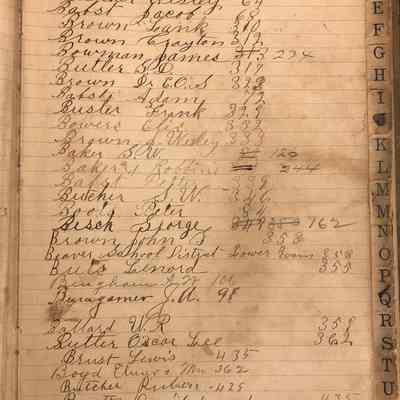 Wesley 64
Babst Jacob 68
Brown Hank 310
Brown Clayton 312
Bowman James 313 274
Butler S.D. 318
Brown Dr E.O.S 322
Pabst Adam 72
Buster Frank 329
Bowers Eli 333
Brown J. Wesley 333
Baker S.W. 120
Baker & Robbins 344
Babst Peter
Butcher S.W. 346
Boots Peter
Besch George 349 162
Brown John S 353
Beaver School District Lower Evans 358
Buls Lenord 355
Bingham
Bumgarner J.A. 98
Ballard W.R 358
Butler Oscar Lee 362
Brust Lewis 435
Boyd Elmer Mrs 362
Butcher Ruben 425
E
F
G
H
I
K
L
M
N
O
P
Q
R
S
T
U